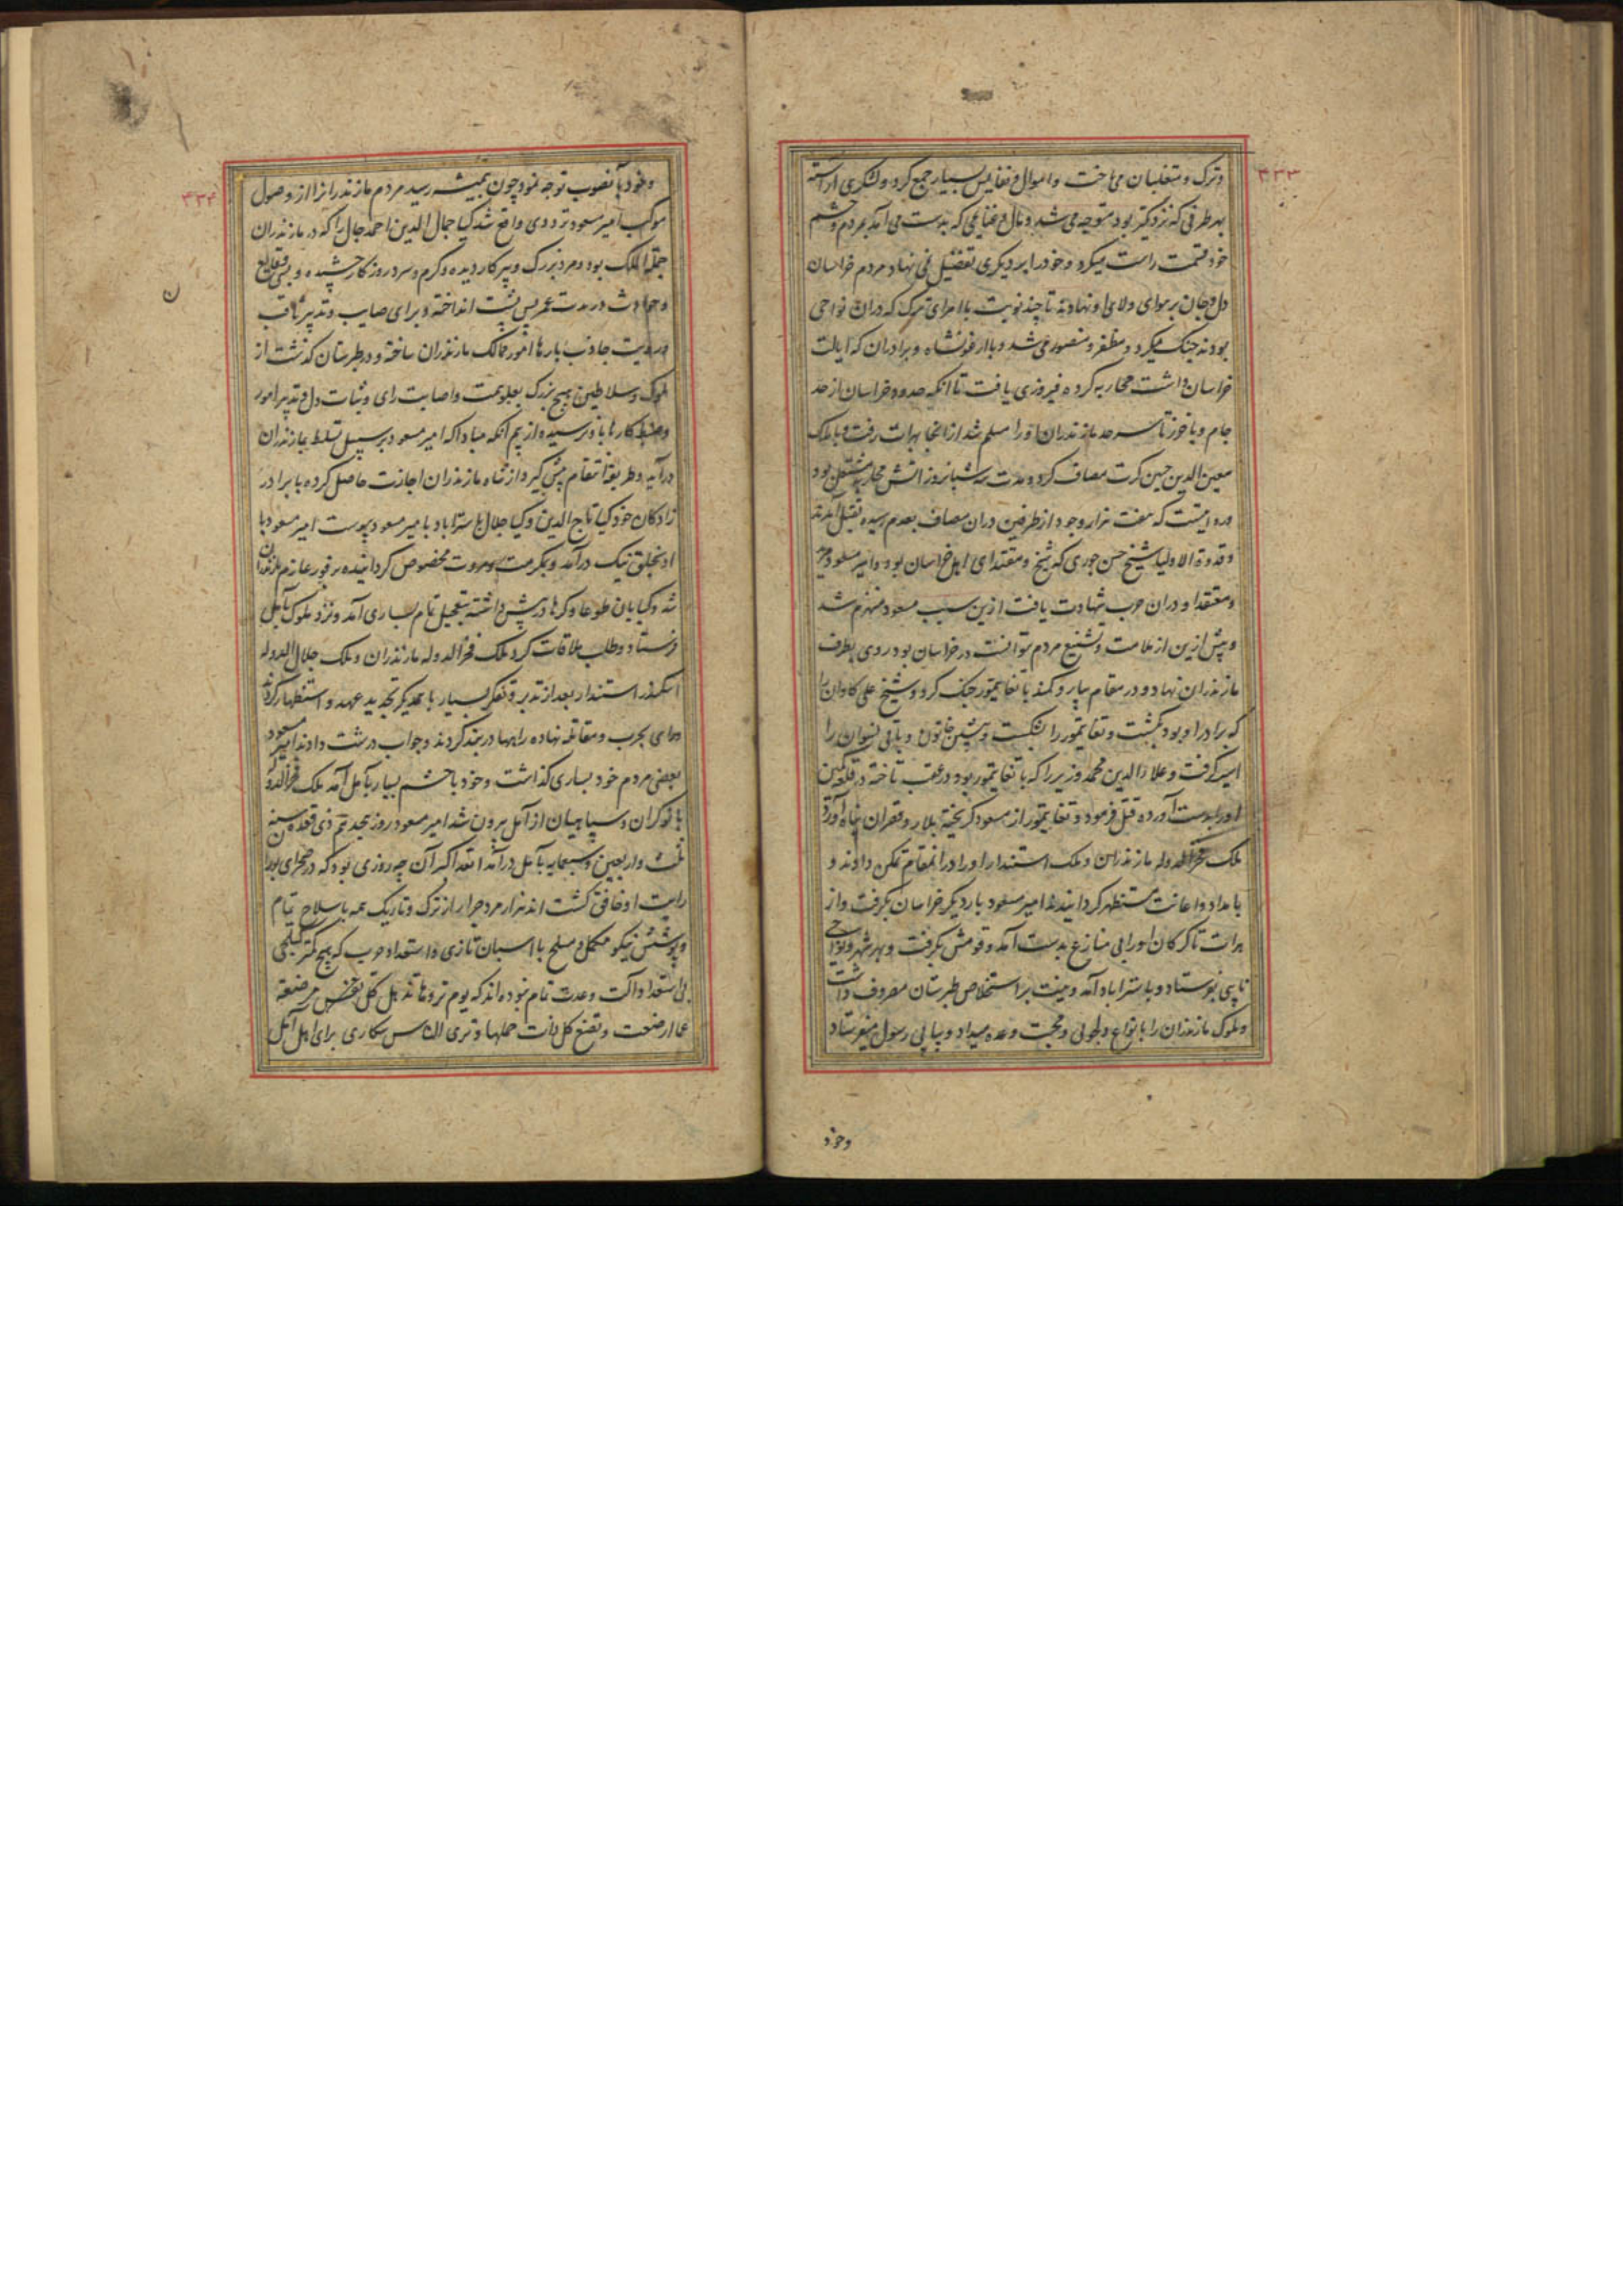 ۳۳۳
و ترک و متغلبان می‌تاخت و اموال و نفایس بسیار جمع کرد و لشکری آراسته
بهر طرفی که نزدیکتر بود متوجه می شد و مال و غنایمی که بدست می آمد بمردم و حشم
خود قسمت راست میکرد و خود را بر دیگری تفضیل نمی نهاد مردم خراسان
دل و جان بر هوای ولای او نهادند تا چند نوبت با امرای ترک که در آن نواحی
بودند جنگ میکرد و مظفر و منصور می شد و با ارغونشاه و برادران که ایالت
خراسان داشت محاربه کرده فیروزی یافت تا آنکه حدود خراسان از حد
جام و باخرز تا سرحد مازندران او را مسلم شد از آنجا بهرات رفت و با ملک
معین الدین حسین کرت مصاف کرد و مدت سه شبانروز آتش محاربه مشتعل بود
که هفت هزار وجود از طرفین در آن مصاف بعدم رسیده بقتل آمدند
و قدوة الاولیا شیخ حسن جوری که شیخ و مقتدای اهل خراسان بود و امیر مسعود مرید
و معتقد او در آن حرب شهادت یافت ازین سبب مسعود منهزم شد
و بیش ازین از ملامت و تشنیع مردم نتوانست در خراسان بود روی بطرف
مازندران نهاد و در مقام با تغایتمور جنگ کرد و شیخ علی کاوان را
که برادر او بود بکشت و تغایتمور را بشکست و خاتون و باقی نسوان را
اسیر گرفت و علاء الدین محمد وزیر را که با تغایتمور بود در عقب تاخته در
او را بدست آورده قتل فرمود و تغایتمور از مسعود گریخته بلار و قصران پناه آورد
ملک فخر الدوله مازندران و ملک استندار او را در آن مقام تمکن دادند و
بامداد و اعانت مستظهر گردانیدند امیر مسعود بار دیگر خراسان بگرفت و از
هرات تا گرکان او را بی منازع بدست آمد و قومش بگرفت و بهر شهر و نواحی
نایبی بفرستاد و باسترآباد آمد و همت بر استخلاص طبرستان مصروف داشت
و ملوک مازندران را بانواع دلجوئی و محبت وعده میداد و پیاپی رسول میفرستاد
وخود
۳۳۴
و خود بآنصوب توجه نمود چون بتمیشه رسید مردم مازندران را از وصول
موکب امیر مسعود ترددی واقع شد کیا جمال الدین احمد جال را که در مازندران
جملة الملک بود و مرد بزرگ و پیر کار دیده و گرم و سرد روزگار چشیده و بسی وقایع
و حوادث در مدت عمر پس پشت انداخته و برای صایب و تدبیر ثاقب
بارها امور ممالک مازندران ساخته و در طبرستان گذشت از
ملوک و سلاطین هیچ بزرگ بعلو همت و اصابت رای و ثبات دل و تدبیر امور
و ضبط کارها باو نرسیده از بیم آنکه مبادا که امیر مسعود بر سبیل تسلط بمازندران
درآید و طریقه انتقام پیش گیرد از شاه مازندران اجازت حاصل کرده با برادر
زادگان خود کیا تاج الدین و کیا جلال باسترآباد بامیر مسعود پیوست امیر مسعود با
او بخلق نیک درآمد و بمکرمت و مروت مخصوص گردانیده بر فور عازم مازندران
شد و کیایان طوعا و کرها در پیش داشته بتعجیل تمام بساری آمد و نزد ملوک بآمل
فرستاد و طلب ملاقات کرد ملک فخر الدوله مازندران و ملک جلال الدوله
اسکندر استندار بعد از تدبر و تفکر بسیار با همدیگر تجدید عهد و استظهار کردند
بحرب و مقاتله نهاده راهها دربند کردند و جواب درشت دادند امیر مسعود
بعضی مردم خود بساری گذاشت و خود با حشم بسیار بآمل آمد ملک فخر الدوله
با نوکران و سپاهیان از آمل برون شد امیر مسعود روز هجدهم ذی قعده سنه
ثلث و اربعین و سبعمایه بآمل درآمد الله اکبر آن چه روزی بود که در صحرای
رایت او خافق گشت اند هزار مرد جرار از ترک و تاجیک همه با سلاح تمام
و پوشش نیکو مکمل و مسلح با اسبان تازی و استعداد حرب که هیچ کمتر کسی
بی استعداد و آلت و عدت تمام نبوده اند که یوم ترونها تذهل کل مرضعة
عما ارضعت و تضع کل ذات حملها و تری الناس سکاری برای اهل آمل